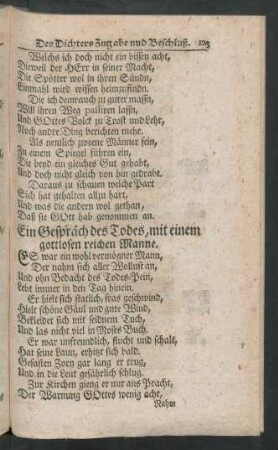 Des Dichters Zugabe und Beschluß.
Welchs ich doch nicht ein bissen acht,
Dieweil der HErr in seiner Macht,
Die Spötter wol in ihren Sündn,
Einmahl wird wissen heimzufindn.
Die ich dennrauch zu guter massen,
Will ihren Weg passiren lassen,
Und GOttes Volck zu Trost und Lehr,
Noch andre Ding berichten mehr.
Als nemlich zweene Männer fein,
Zu einem Spiegel führen ein,
Die beyd ein gleiches Gut gehabt,
Und doch nicht gleich von hin gedrabt.
Daraus zu schauen welche Part
Sich hat gehalten allzu hart,
Und was die andern wol gethan,
Daß sie GOtt hab genommen an.
Ein Gespräch des Todes, mit einem
gottlosen reichen Manne.
ES war ein wohl vermögner Mann,
Der nahm sich aller Wollust an,
Und ohn Bedacht des Todes-Pein,
Lebt immer in den Tag hinein.
Er hielt sich statlich, fras geschwind,
Hielt schöne Gäul und gute Wind,
Bekleidet sich mit seidnem Tuch,
Und las nicht viel in Moses Buch.
Er war unfreundlich, flucht und schalt,
Hat seine Laun, erhitzt sich bald.
Gefasten Zorn gar lang er trug,
Und in die Leut gefährlich schlug.
Zur Kirchen gieng er nur aus Pracht,
Der Warnung GOttes wenig acht,
Nahm